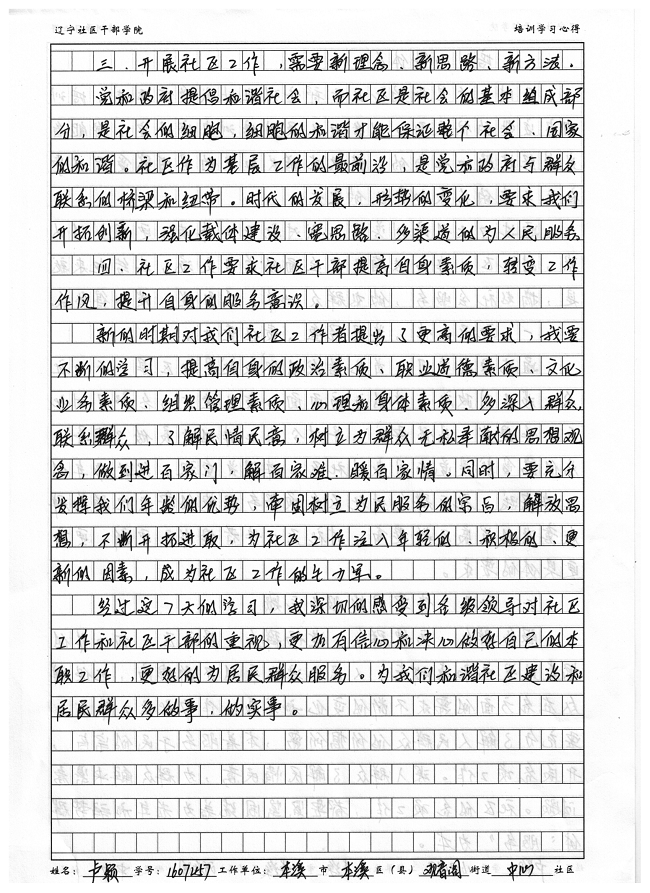 辽宁社区干部学院 培训学习心得
三、开展社区工作，需要新理念、新思路、新方法。
党和政府提倡和谐社会，而社区是社会的基本组成部
分，是社会的细胞，细胞的和谐才能保证整个社会、国家
的和谐。社区作为基层工作的最前沿，是党和政府与群众
联系的桥梁和纽带。时代的发展，形势的变化，要求我们
开拓创新，强化载体建设、宽思路、多渠道的为人民服务
四、社区工作要求社区干部提高自身素质，转变工作
作风，提升自身的服务意识。
新的时期对我们社区工作者提出了更高的要求，我要
不断的学习，提高自身的政治素质、职业道德素质、文化
业务素质、组织管理素质、心理和身体素质，多深入群众，
联系群众，了解民情民意，树立为群众无私奉献的思想观
念，做到进百家门，解百家难，暖百家情。同时，要充分
发挥我们年龄的优势，牢固树立为民服务的宗旨，解放思
想，不断开拓进取，为社区工作注入年轻的、积极的、更
新的因素，成为社区工作的生力军。
经过这7天的学习，我深切的感受到各级领导对社区
工作和社区干部的重视，更加有信心和决心做好自己的本
职工作，更好的为居民群众服务。为我们和谐社区建设和
居民群众多做事，做实事。
姓名：卢颖 学号：1607257 工作单位：本溪 市 本溪 区（县） 观音阁 街道 中心 社区